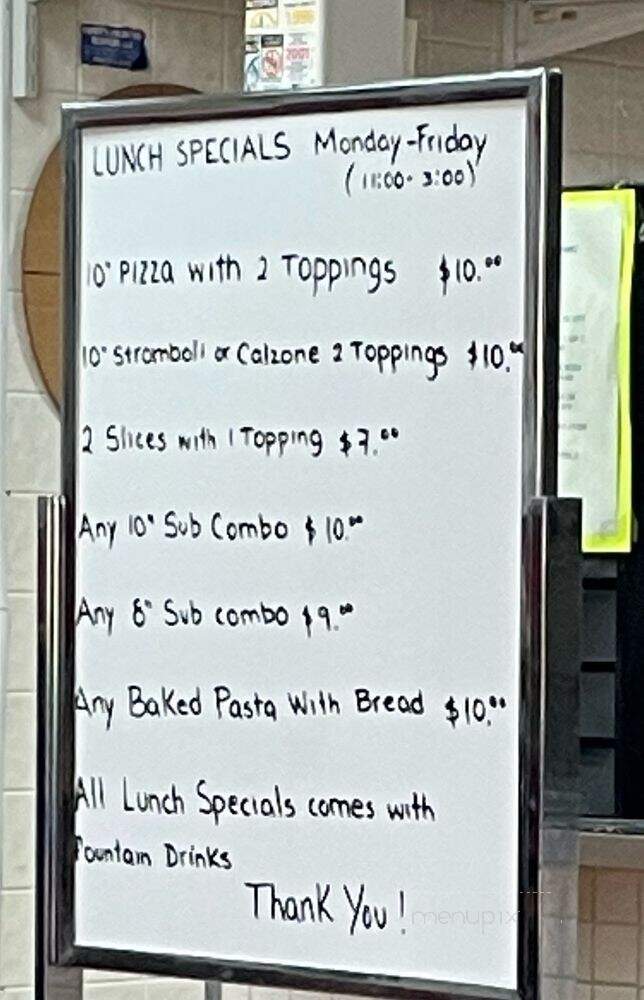 LUNCH SPECIALS Monday-Friday
(11:00-3:00)
10" PIZZA with 2 Toppings $10.00
10" Stromboli or Calzone 2 Toppings $10.00
2 Slices with 1 Topping $7.00
Any 10" Sub Combo $10.00
Any 8" Sub combo $9.00
Any Baked Pasta With Bread $10.00
All Lunch Specials comes with
Fountain Drinks
Thank You!
menupix